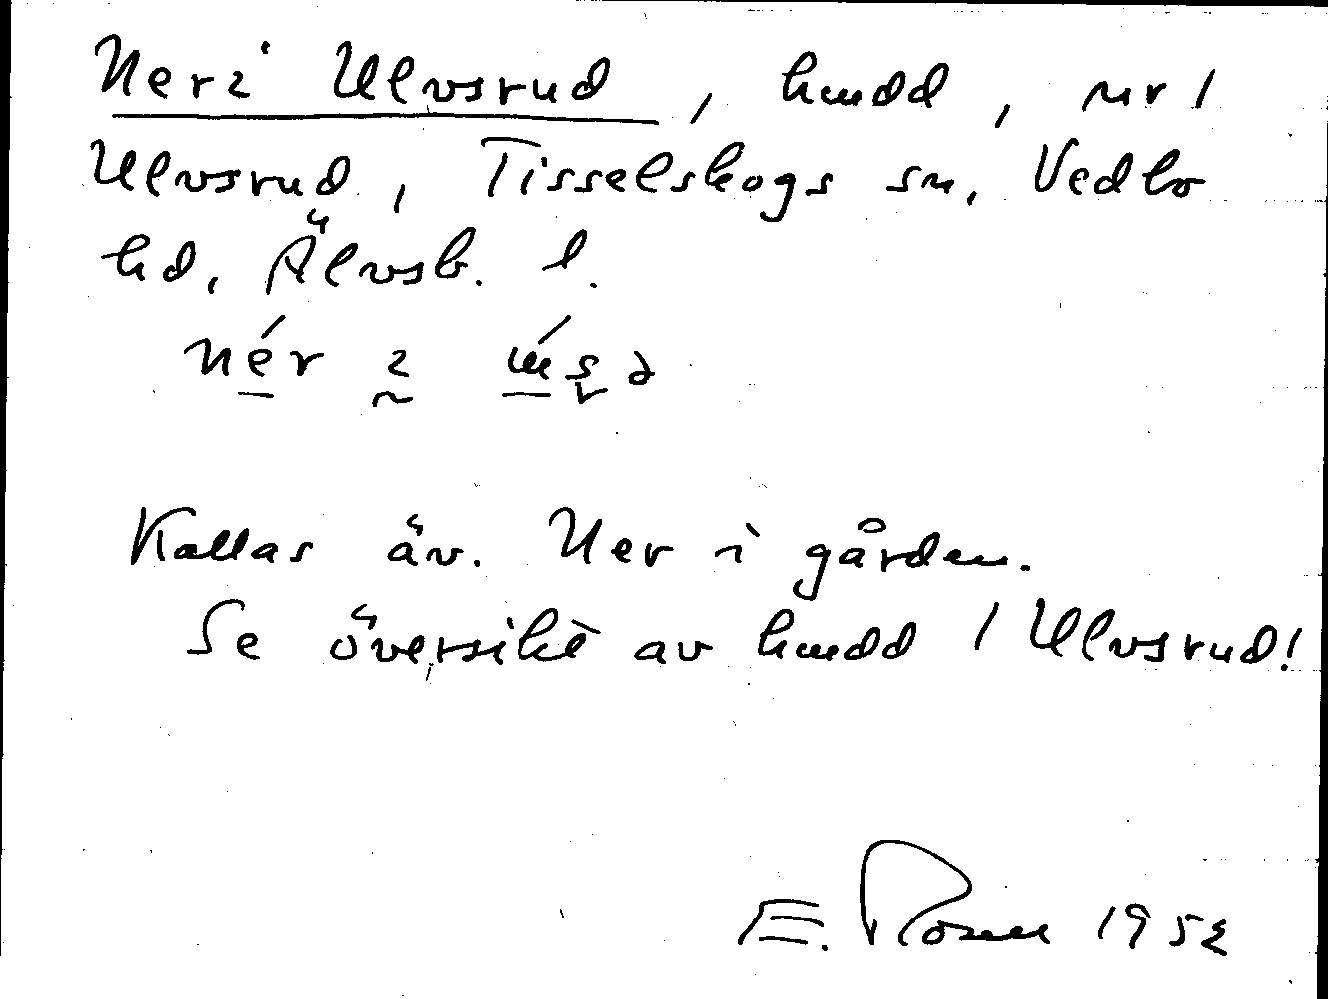 Ner i Ulvsrud, hmdd, nr 1
Ulvsrud, Tisselskogs sn, Vedbo
hd, Älvsb. l.
Kallas äv. Ner i gården.
Se översikt av hmdd 1 Ulvsrud!
E. Rosell 1952